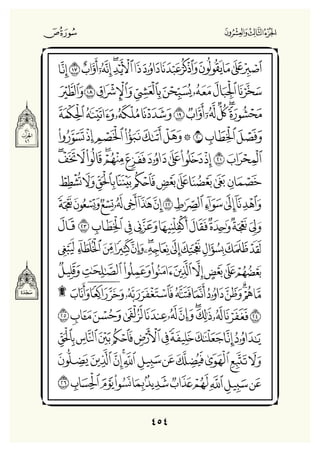 الجزء الثالث والعشرون
سورة ص
ٱصْبِرْ عَلَىٰ مَا يَقُولُونَ وَٱذْكُرْ عَبْدَنَا دَاوُۥدَ ذَا ٱلْأَيْدِ ۖ إِنَّهُۥٓ أَوَّابٌ ١٧ إِنَّا
سَخَّرْنَا ٱلْجِبَالَ مَعَهُۥ يُسَبِّحْنَ بِٱلْعَشِىِّ وَٱلْإِشْرَاقِ ١٨ وَٱلطَّيْرَ
مَحْشُورَةً ۖ كُلٌّ لَّهُۥٓ أَوَّابٌ ١٩ وَشَدَدْنَا مُلْكَهُۥ وَءَاتَيْنَـٰهُ ٱلْحِكْمَةَ
وَفَصْلَ ٱلْخِطَابِ ٢٠ ۞ وَهَلْ أَتَىٰكَ نَبَؤُا۟ ٱلْخَصْمِ إِذْ تَسَوَّرُوا۟
ٱلْمِحْرَابَ ٢١ إِذْ دَخَلُوا۟ عَلَىٰ دَاوُۥدَ فَفَزِعَ مِنْهُمْ ۖ قَالُوا۟ لَا تَخَفْ ۖ
خَصْمَانِ بَغَىٰ بَعْضُنَا عَلَىٰ بَعْضٍ فَٱحْكُم بَيْنَنَا بِٱلْحَقِّ وَلَا تُشْطِطْ
وَٱهْدِنَآ إِلَىٰ سَوَآءِ ٱلصِّرَٰطِ ٢٢ إِنَّ هَـٰذَآ أَخِى لَهُۥ تِسْعٌ وَتِسْعُونَ نَعْجَةً
وَلِىَ نَعْجَةٌ وَٰحِدَةٌ فَقَالَ أَكْفِلْنِيهَا وَعَزَّنِى فِى ٱلْخِطَابِ ٢٣ قَالَ
لَقَدْ ظَلَمَكَ بِسُؤَالِ نَعْجَتِكَ إِلَىٰ نِعَاجِهِۦ ۖ وَإِنَّ كَثِيرًا مِّنَ ٱلْخُلَطَآءِ لَيَبْغِى
بَعْضُهُمْ عَلَىٰ بَعْضٍ إِلَّا ٱلَّذِينَ ءَامَنُوا۟ وَعَمِلُوا۟ ٱلصَّـٰلِحَـٰتِ وَقَلِيلٌ
مَّا هُمْ ۗ وَظَنَّ دَاوُۥدُ أَنَّمَا فَتَنَّـٰهُ فَٱسْتَغْفَرَ رَبَّهُۥ وَخَرَّ رَاكِعًا وَأَنَابَ ۩
٢٤ فَغَفَرْنَا لَهُۥ ذَٰلِكَ ۖ وَإِنَّ لَهُۥ عِندَنَا لَزُلْفَىٰ وَحُسْنَ مَـَٔابٍ ٢٥
يَـٰدَاوُۥدُ إِنَّا جَعَلْنَـٰكَ خَلِيفَةً فِى ٱلْأَرْضِ فَٱحْكُم بَيْنَ ٱلنَّاسِ بِٱلْحَقِّ
وَلَا تَتَّبِعِ ٱلْهَوَىٰ فَيُضِلَّكَ عَن سَبِيلِ ٱللَّهِ ۚ إِنَّ ٱلَّذِينَ يَضِلُّونَ
عَن سَبِيلِ ٱللَّهِ لَهُمْ عَذَابٌ شَدِيدٌۢ بِمَا نَسُوا۟ يَوْمَ ٱلْحِسَابِ ٢٦
٤٥٤